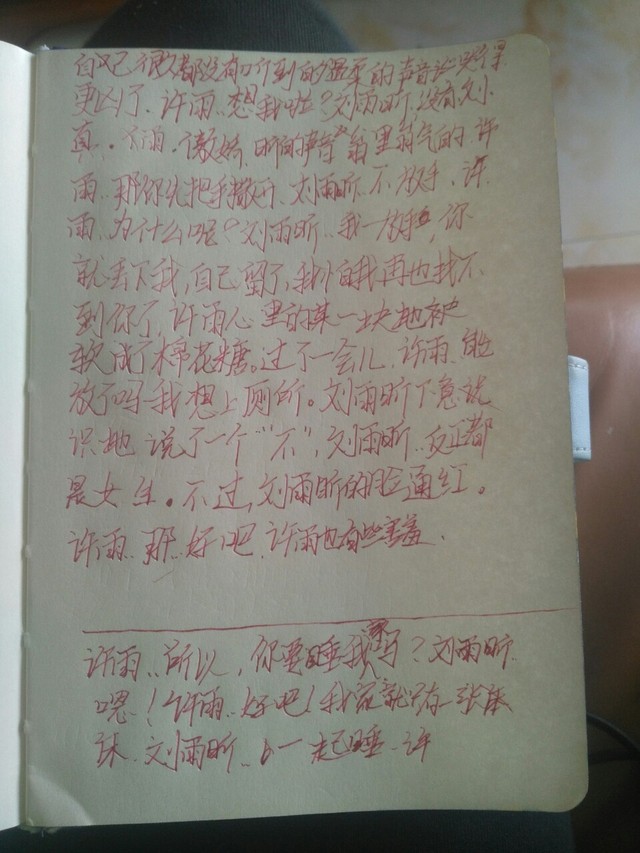 自己很久都没有听到的温柔的声音说哭得
更凶了. 许雨..想我啦? 刘雨昕,没有刘
雨..傲娇, 昕的声音翁里翁气的. 许
雨..那你先把手撒开. 刘雨昕..不放手. 许
雨..为什么呢? 刘雨昕..我一放手, 你
就丢下我,自己留了,我怕我再也找不
到你了, 许雨心里的某一块地被
软成了棉花糖。过了一会儿, 许雨..能
放了吗我想上厕所。刘雨昕下意识
识地说了一个“不”, 刘雨昕..反正都
是女生。不过,刘雨昕的脸通红。
许雨..那..好吧. 许雨也有些害羞.
许雨..所以, 你要睡我家吗? 刘雨昕.
嗯! 许雨..好吧! 我家就只有一张床
刘雨昕..一起睡. 许